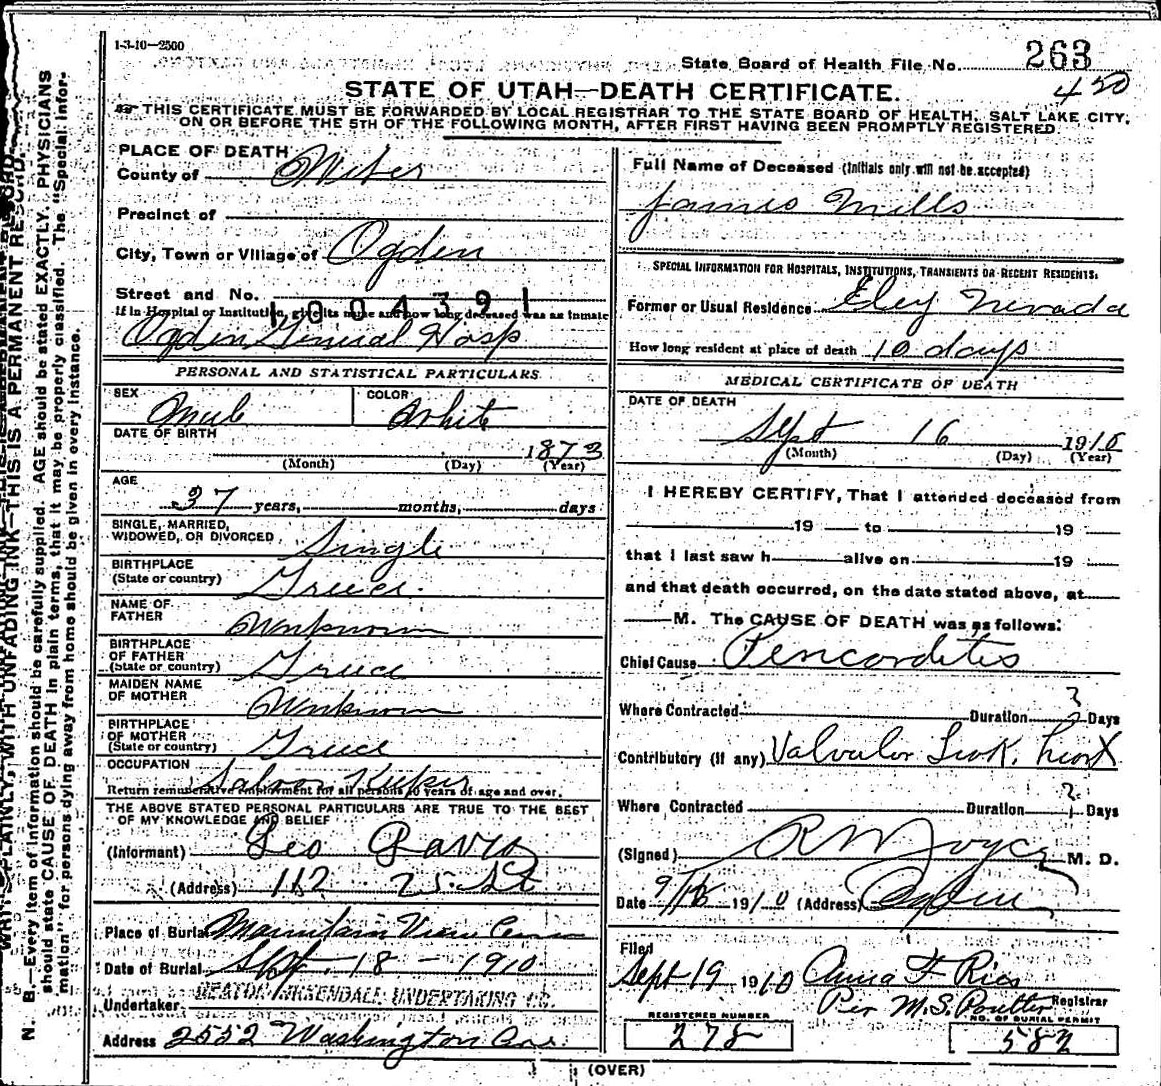 1-3-10—2500
State Board of Health File No. 263
450
STATE OF UTAH—DEATH CERTIFICATE.
THIS CERTIFICATE MUST BE FORWARDED BY LOCAL REGISTRAR TO THE STATE BOARD OF HEALTH, SALT LAKE CITY,
ON OR BEFORE THE 5TH OF THE FOLLOWING MONTH, AFTER FIRST HAVING BEEN PROMPTLY REGISTERED
PLACE OF DEATH
County of Weber
Precinct of
City, Town or Village of Ogden
Street and No.
1004391
If in Hospital or Institution, give its name and how long deceased was as inmate
Ogden General Hosp
PERSONAL AND STATISTICAL PARTICULARS
SEX Male COLOR White
DATE OF BIRTH
1873
(Month) (Day) (Year)
AGE
37 years, months, days
SINGLE, MARRIED,
WIDOWED, OR DIVORCED Single
BIRTHPLACE
(State or country) Greece
NAME OF
FATHER Unknown
BIRTHPLACE
OF FATHER
(State or country) Greece
MAIDEN NAME
OF MOTHER Unknown
BIRTHPLACE
OF MOTHER
(State or country) Greece
OCCUPATION Saloon Keeper
Return remunerative employment for all persons 10 years of age and over.
THE ABOVE STATED PERSONAL PARTICULARS ARE TRUE TO THE BEST
OF MY KNOWLEDGE AND BELIEF
(Informant) Geo Pavis
(Address) 112 25 St
Place of Burial Mountain View Cem
Date of Burial Sept. 18 - 1910
Undertaker UNDERTAKING CO.
Address 2552 Washington Ave.
Full Name of Deceased (Initials only will not be accepted)
James Mills
SPECIAL INFORMATION FOR HOSPITALS, INSTITUTIONS, TRANSIENTS OR RECENT RESIDENTS:
Former or Usual Residence Eley Nevada
How long resident at place of death 10 days
MEDICAL CERTIFICATE OF DEATH
DATE OF DEATH
Sept 16 1910
(Month) (Day) (Year)
I HEREBY CERTIFY, That I attended deceased from
19 to 19
that I last saw h alive on 19
and that death occurred, on the date stated above, at
M. The CAUSE OF DEATH was as follows:
Chief Cause Pericarditis
Where Contracted Duration ? Days
Contributory (if any) Valvular heart
Where Contracted Duration ? Days
(Signed) M. D.
Date 9/16 1910 (Address) Ogden
Filed
Sept 19 1910 Anna F Rios
Per M.S. Poulter Registrar
REGISTERED NUMBER
278
NO. OF BURIAL PERMIT
582
(OVER)
WRITE PLAINLY, WITH UNFADING INK—THIS IS A PERMANENT RECORD.
N. B.—Every item of information should be carefully supplied. AGE should be stated EXACTLY. PHYSICIANS
should state CAUSE OF DEATH in plain terms, that it may be properly classified. The "Special Infor-
mation" for persons dying away from home should be given in every instance.